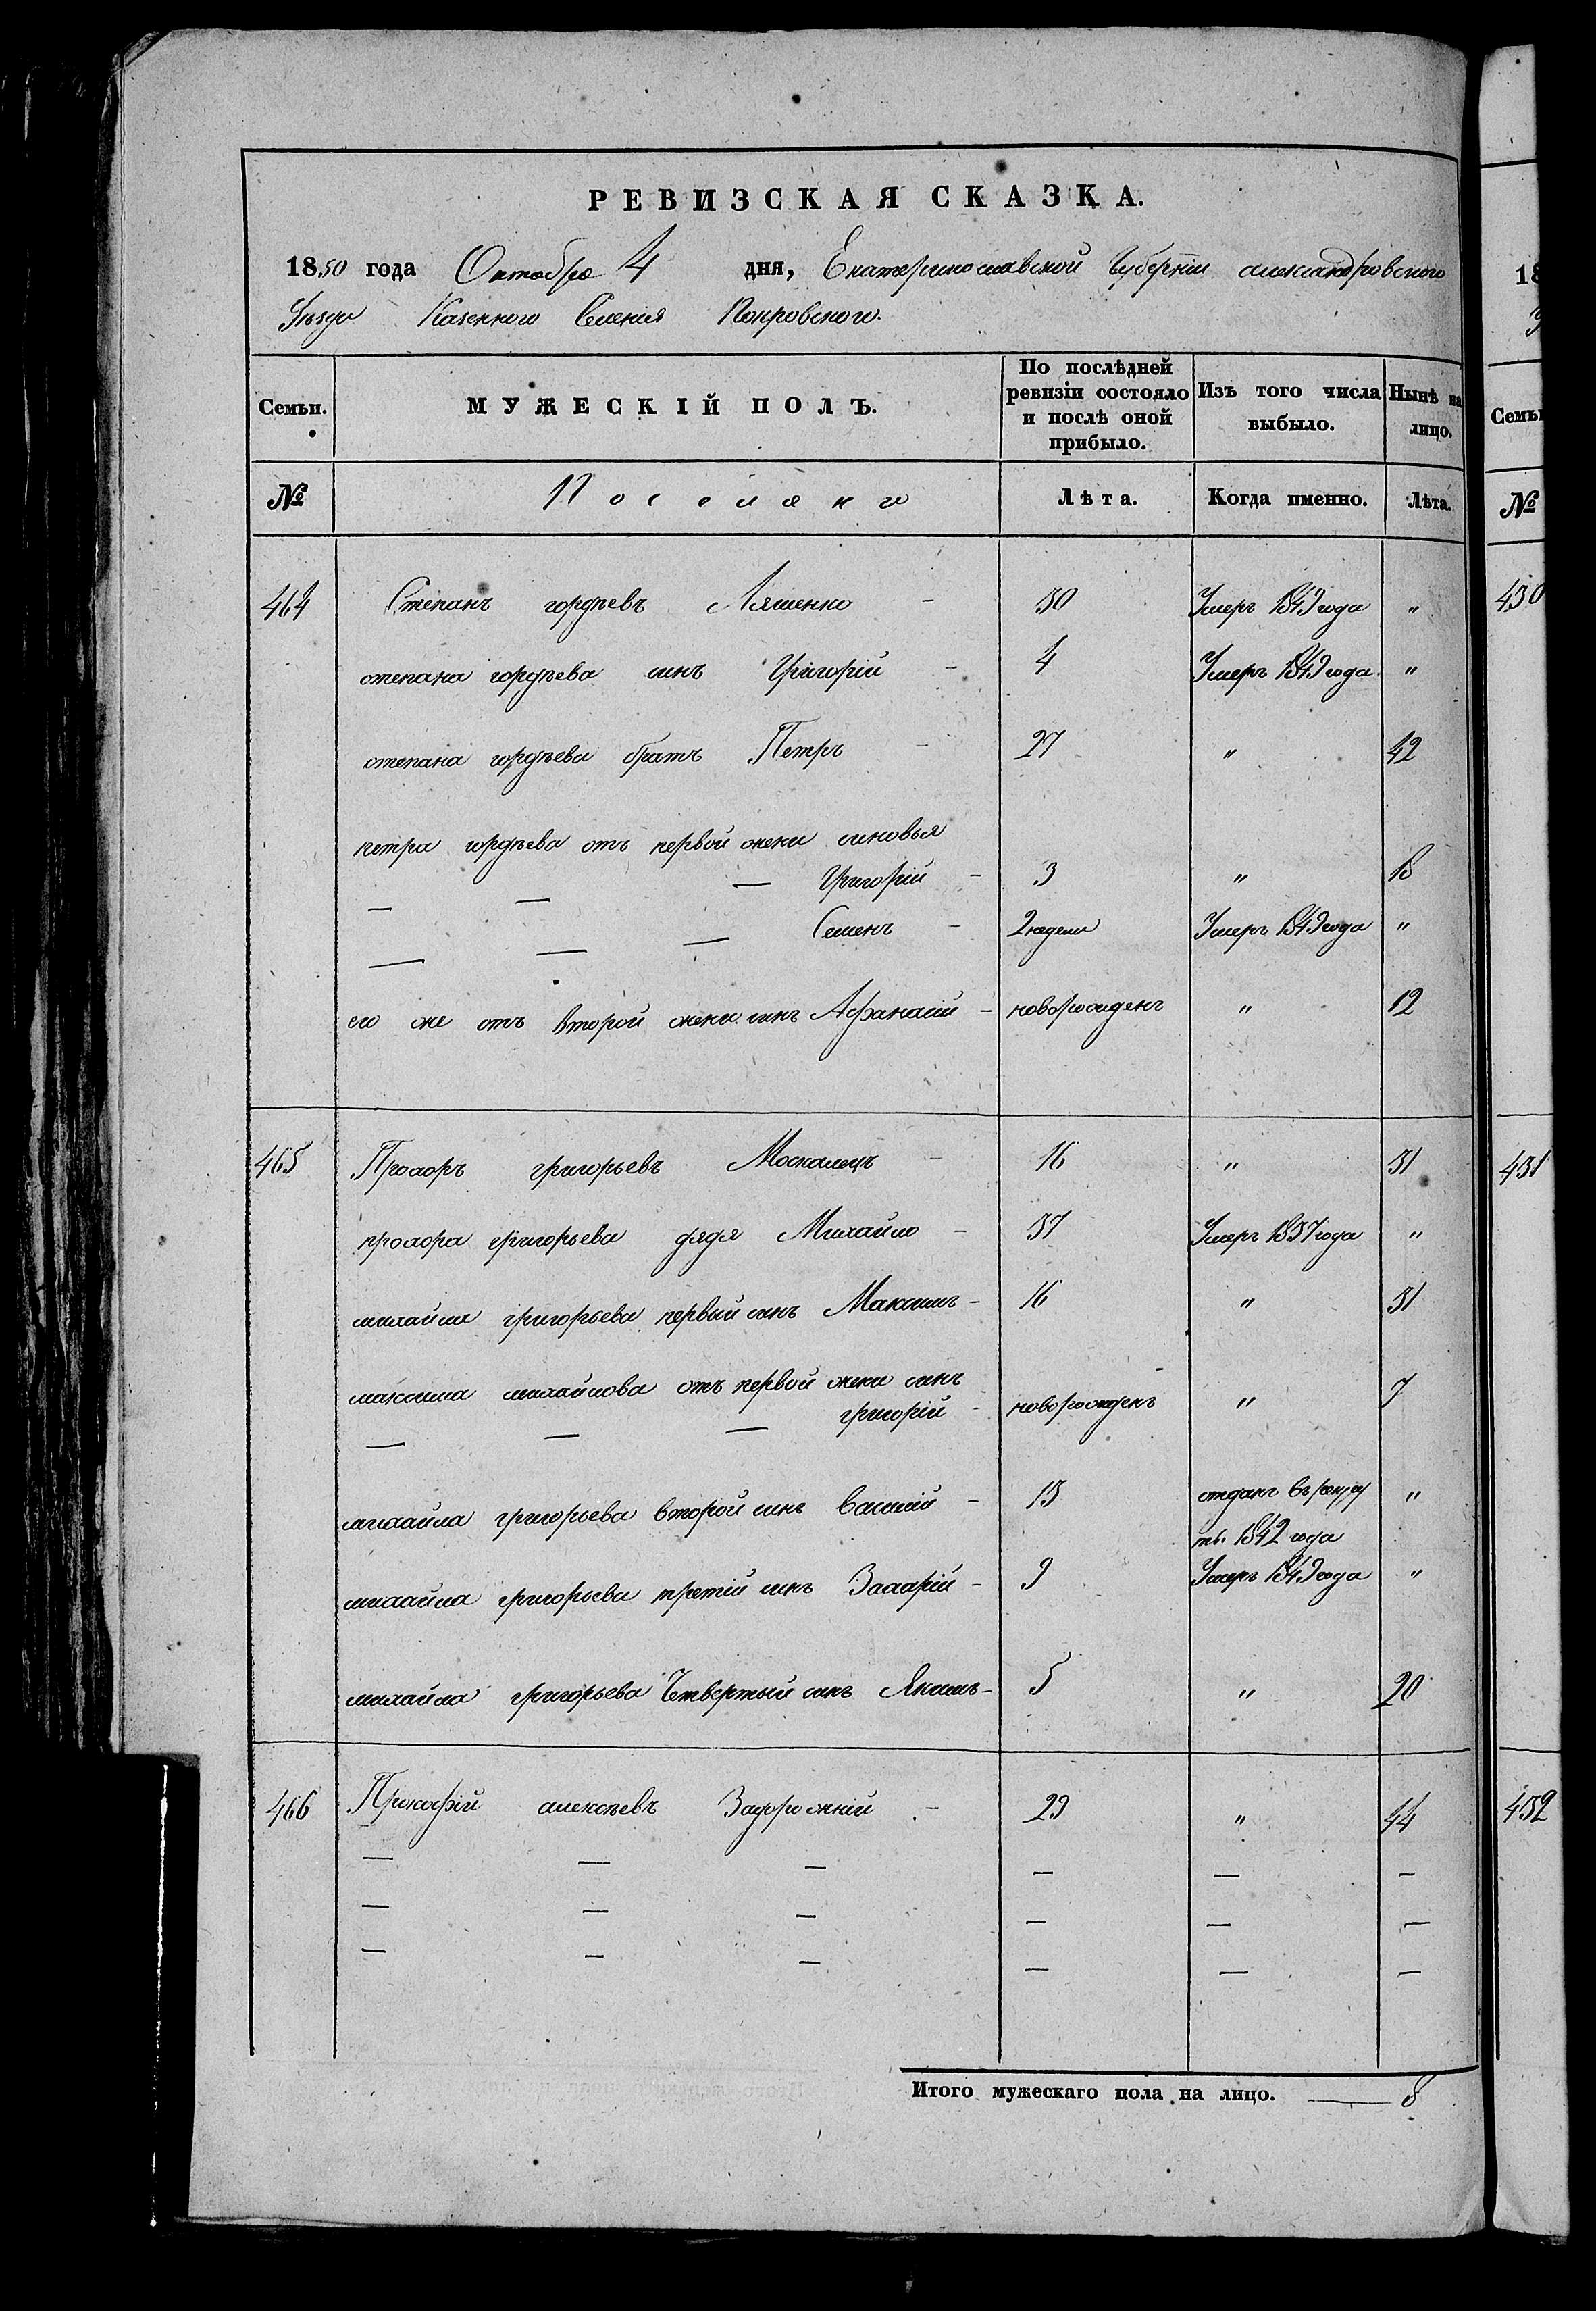 РЕВИЗСКАЯ СКАЗКА.
1850 года Октября 4 дня, Екатеринославской Губернии александровского
Уѣзда Казенного Селения Покровского.
Семьи. МУЖЕСКІЙ ПОЛЪ. По послѣдней ревизіи состояло и послѣ оной прибыло. Изъ того числа выбыло. Нынѣ на лицо.
№ Поселяне Лѣта. Когда именно. Лѣта.
464 Степанъ гордѣевъ Ляшенко - 50 Умеръ 1849 года "
степана гордѣева синъ Григорій - 4 Умеръ 1849 года "
степана гордѣева братъ Петръ - 27 " 42
петра гордѣева отъ первой жени синовья
— — — Григорій - 3 " 18
— — — Семенъ - 2 недели Умеръ 1849 года "
его же отъ второй жени синъ Афанасій - новорожденъ " 12
465 Прохоръ григорьевъ Москалецъ - 16 " 31
прохора григорьева дядя Михайло - 37 Умеръ 1837 года "
михайла григорьева первый синъ Максимъ - 16 " 31
максима михайлова отъ первой жени синъ
— — — григорій - новорожденъ " 7
михайла григорьева второй синъ Василій - 13 отданъ въ рекру
ты. 1842 года "
михайла григорьева третій синъ Захарій - 9 Умеръ 1849 года "
михайла григорьева Четвертый синъ Якимъ - 5 " 20
466 Прокофій алексѣевъ Задорожній - 29 " 44
— — — — — —
— — — — — —
— — — — — —
Итого мужескаго пола на лицо. — 8
18
Семьи
№
450
451
452